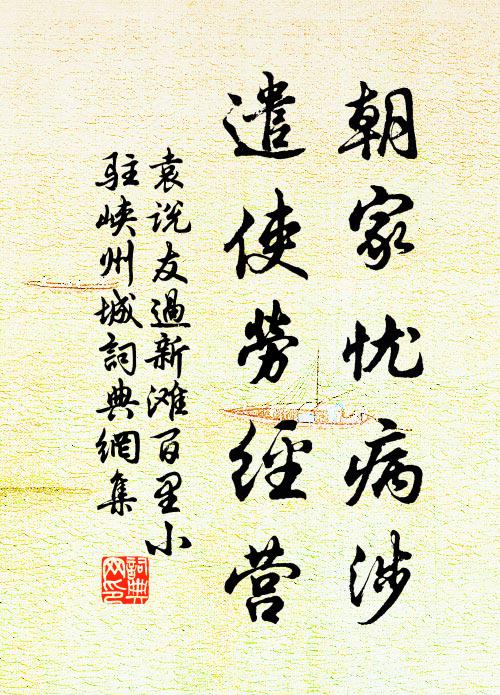 朝家忧病涉
遣使勞經营
袁说友過新滩百里小
驻峡州城詞典網集
詞典
网印